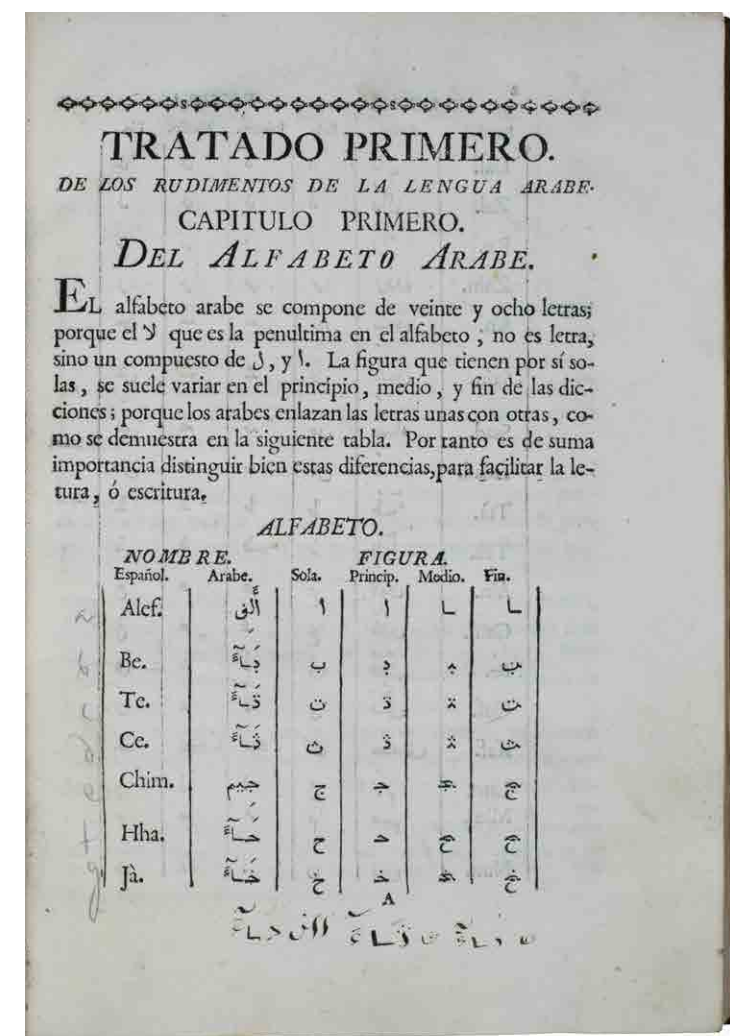 TRATADO PRIMERO.
DE LOS RUDIMENTOS DE LA LENGUA ARABE.
CAPITULO PRIMERO.
DEL ALFABETO ARABE.
EL alfabeto arabe se compone de veinte y ocho letras;
porque el لا que es la penultima en el alfabeto, no es letra,
sino un compuesto de ل, y ا. La figura que tienen por sí so-
las, se suele variar en el principio, medio, y fin de las dic-
ciones; porque los arabes enlazan las letras unas con otras, co-
mo se demuestra en la siguiente tabla. Por tanto es de suma
importancia distinguir bien estas diferencias, para facilitar la le-
tura, ó escritura.
ALFABETO.
NOMBRE. FIGURA.
Español. Arabe. Sola. Princip. Medio. Fin.
Alef. ا ا ـا ـا
Be. بَآءٌ ب بـ ـبـ ـب
Te. تَآءٌ ت تـ ـتـ ـت
Ce. ثَآءٌ ث ثـ ـثـ ـث
Chim. جيم ج جـ ـجـ ـج
Hha. حَآءٌ ح حـ ـحـ ـح
Jà. خَآءٌ خ خـ ـخـ ـخ
A